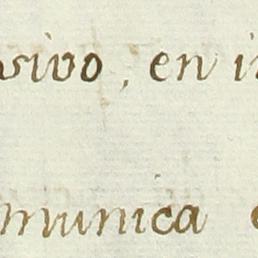 sivo, en i
munica